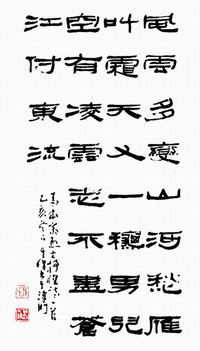 風雲多變山河愁雁
叫霜天又一穐男兒
空有凌雲志不盡蒼
江付東流
乙亥冬